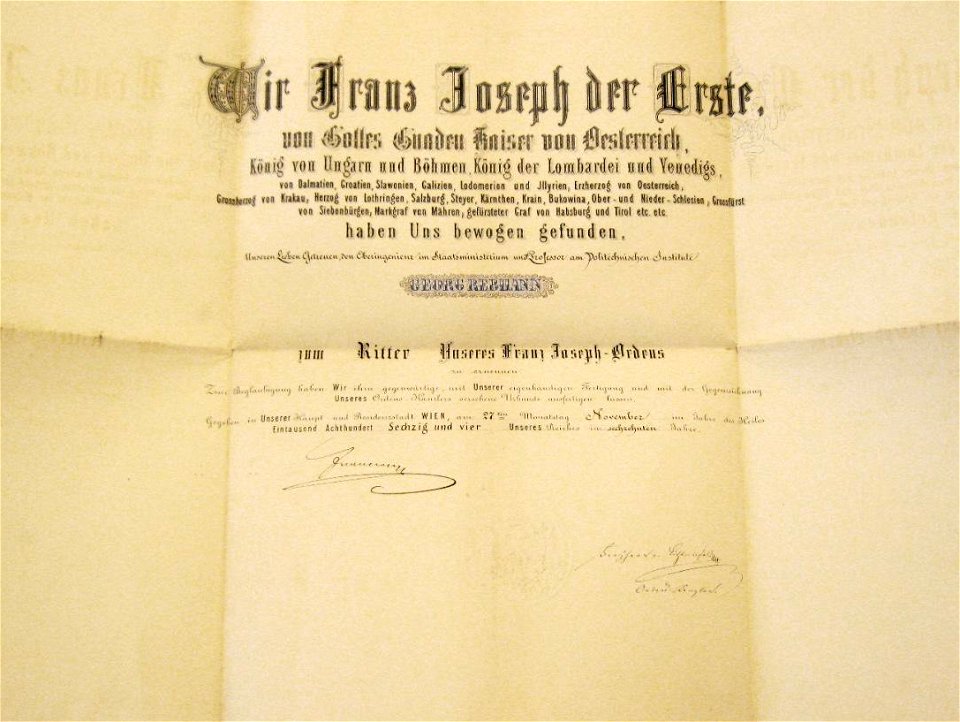 Wir Franz Joseph der Erste,
von Gottes Gnaden Kaiser von Oesterreich,
König von Ungarn und Böhmen, König der Lombardei und Venedigs,
von Dalmatien, Croatien, Slawenien, Galizien, Lodomerien und Jllyrien, Erzherzog von Oesterreich,
Grossherzog von Krakau, Herzog von Lothringen, Salzburg, Steyer, Kärnthen, Krain, Bukowina, Ober- und Nieder-Schlesien, Grossfürst
von Siebenbürgen, Markgraf von Mähren, gefürsteter Graf von Habsburg und Tirol etc. etc.
haben Uns bewogen gefunden,
Unseren Lieben Getreuen, den Oberingenieur im Staatsministerium und Professor am Politechnischen Institute
GEORG REBHANN
zum Ritter Unseres Franz Joseph-Ordens
zu ernennen
Zur Beglaubigung haben Wir ihm gegenwärtige, mit Unserer eigenhändigen Fertigung und mit der Gegenzeichnung
Unseres Ordens Kanzlers versehene Urkunde ausfertigen lassen.
Gegeben in Unserer Haupt und Residenzstadt WIEN, am 27ten Monatstag November im Jahre des Heiles
Eintausend Achthundert Sechzig und vier Unseres Reiches im sechzehnten Jahre.